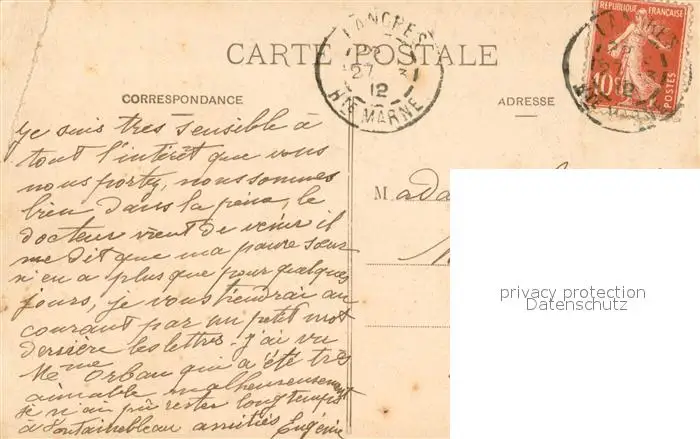 CARTE POSTALE
LANGRES
22
27 3
12
Hte MARNE
REPUBLIQUE FRANCAISE
10
POSTES
CORRESPONDANCE
ADRESSE
Je suis très sensible à
tout l'intérêt que vous
nous portez, nous sommes
bien dans la peine, le
docteur vient de venir il
me dit que ma pauvre sœur
n'en a plus que pour quelques
jours, je vous tiendrai au
courant par un petit mot
derrière les lettres. J'ai vu
Mme Orban qui a été très
aimable malheureusement
je n'ai pu rester longtemps
à Fontainebleau amitiés Eugénie
Mada
privacy protection
Datenschutz